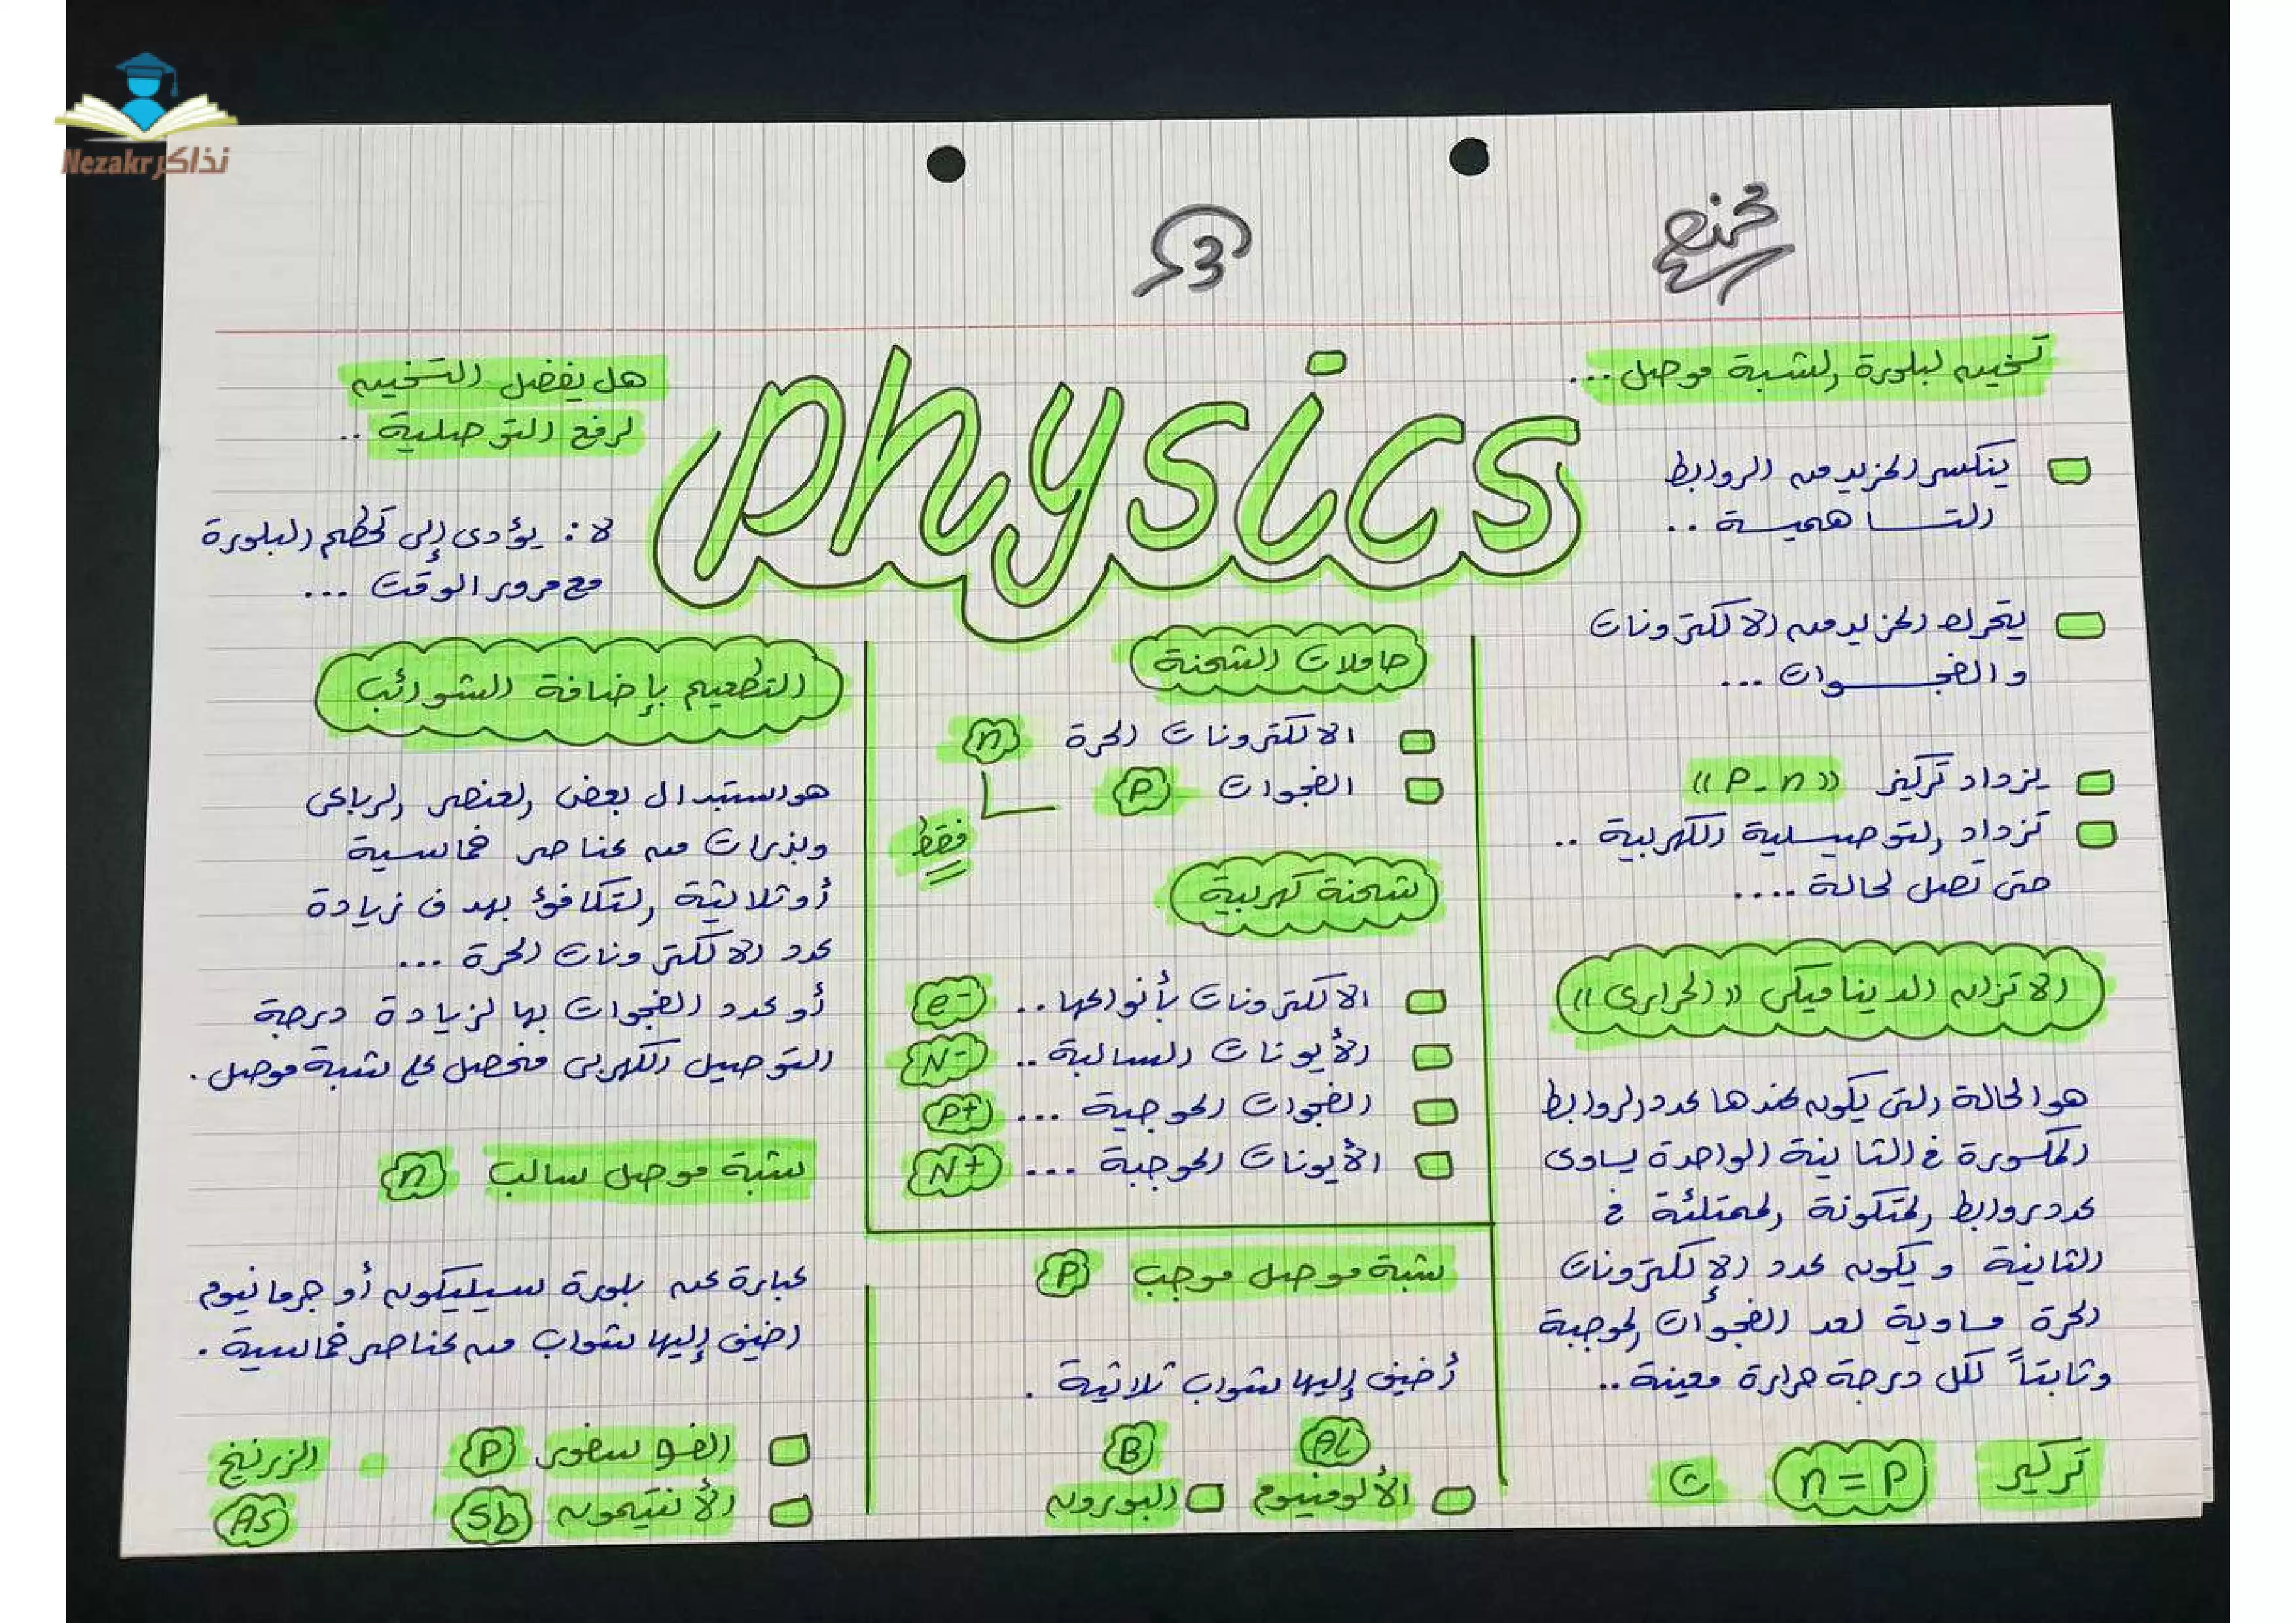 Nezakr نذاكر
3
physics
تسخين لبلورة لشبة موصل...
ينكسر المزيد من الروابط
التساهمية ..
يتحرك المزيد من الالكترونات
والفجوات ...
يزداد تركيز « P - n »
تزداد التوصيلية الكهربية ..
حتى تصل لحالة ....
الاتزان الديناميكى «الحرارى»
هو الحالة التى يكون عندها عدد الروابط
المكسورة فى الثانية الواحدة يساوى
عدد روابط المتكونة الممتلئة فى
الثانية ويكون عدد الإلكترونات
الحرة مساوية لعد الفجوات الموجبة
وثابتاً لكل درجة حرارة معينة..
تركيز n = P ت
حاملات الشحنة
الالكترونات الحرة n
الفجوات P
فقط
شحنة كهربية
الالكترونات بأنواعها .. e-
الأيونات السالبة .. N-
الفجوات الموجبة ... P+
الأيونات الموجبة ... N+
شبة موصل موجب P
أضيف إليها شواب ثلاثية .
AL B
الألومنيوم البورون
هل يفضل التسخين
لرفع التوصلية ..
لا : يؤدى إلى تحطم البلورة
مع مرور الوقت ...
التطعيم بإضافة الشوائب
هو استبدال بعض العنصر الرباعى
وبذرات من عناصر خماسية
أو ثلاثية التكافؤ بهدف زيادة
عدد الالكترونات الحرة ...
أو عدد الفجوات بها لزيادة درجة
التوصيل الكهربى فنحصل على شبة موصل .
شبة موصل سالب n
عبارة عن بلورة سيليكون أو جرمانيوم
اضيف إليها شواب من عناصر خماسية .
الفوسفور P الزرنيخ
الأنتيمون Sb AS